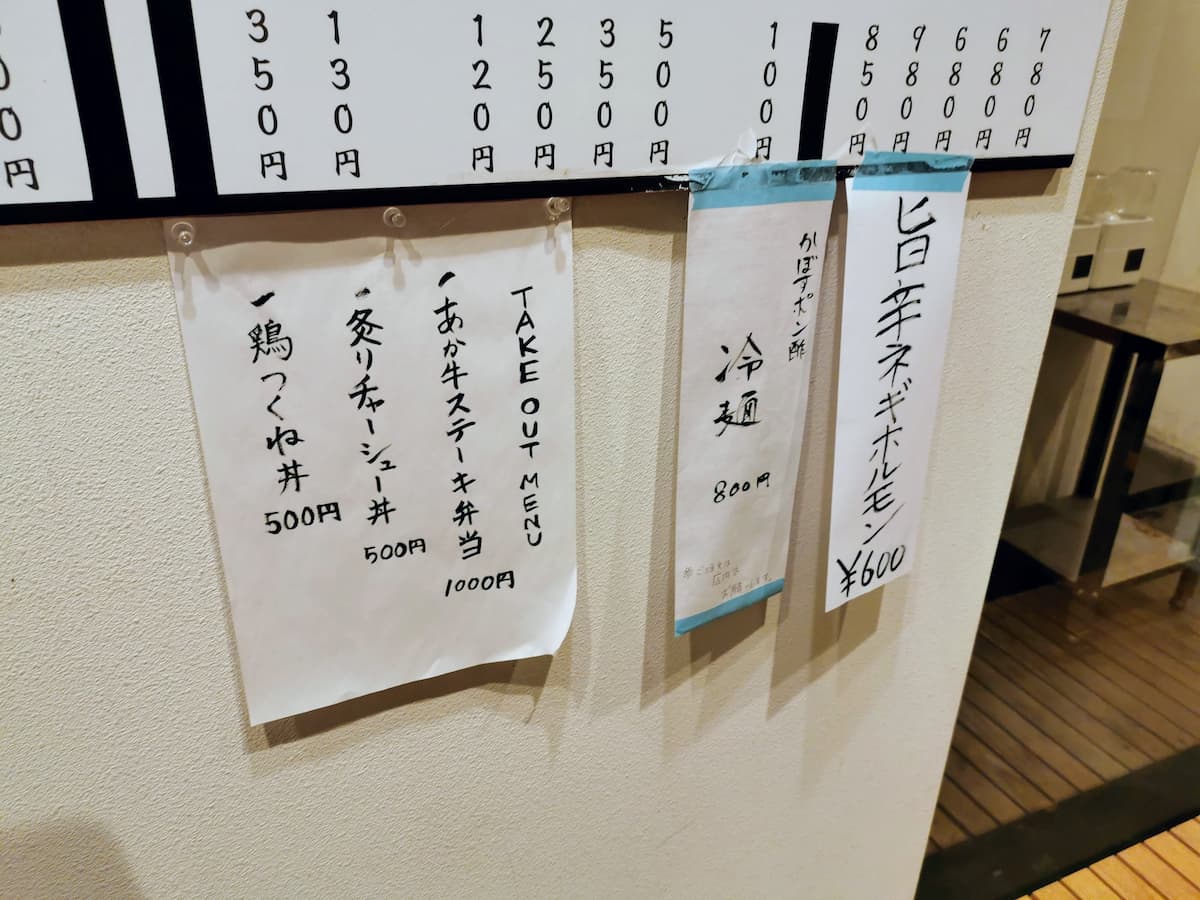 780円
680円
680円
980円
850円
100円
500円
350円
250円
120円
130円
350円
00円
旨辛ネギホルモン
¥600
かぼすポン酢
冷麺
800円
TAKE OUT MENU
・あか牛ステーキ弁当
1000円
・炙りチャーシュー丼
500円
・鶏つくね丼
500円